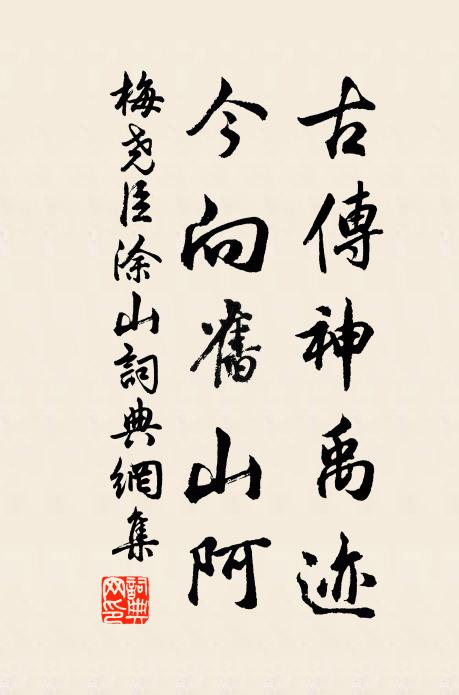 古傳神禹迹
今向舊山阿
梅堯臣涂山詞典網集
詞典网印